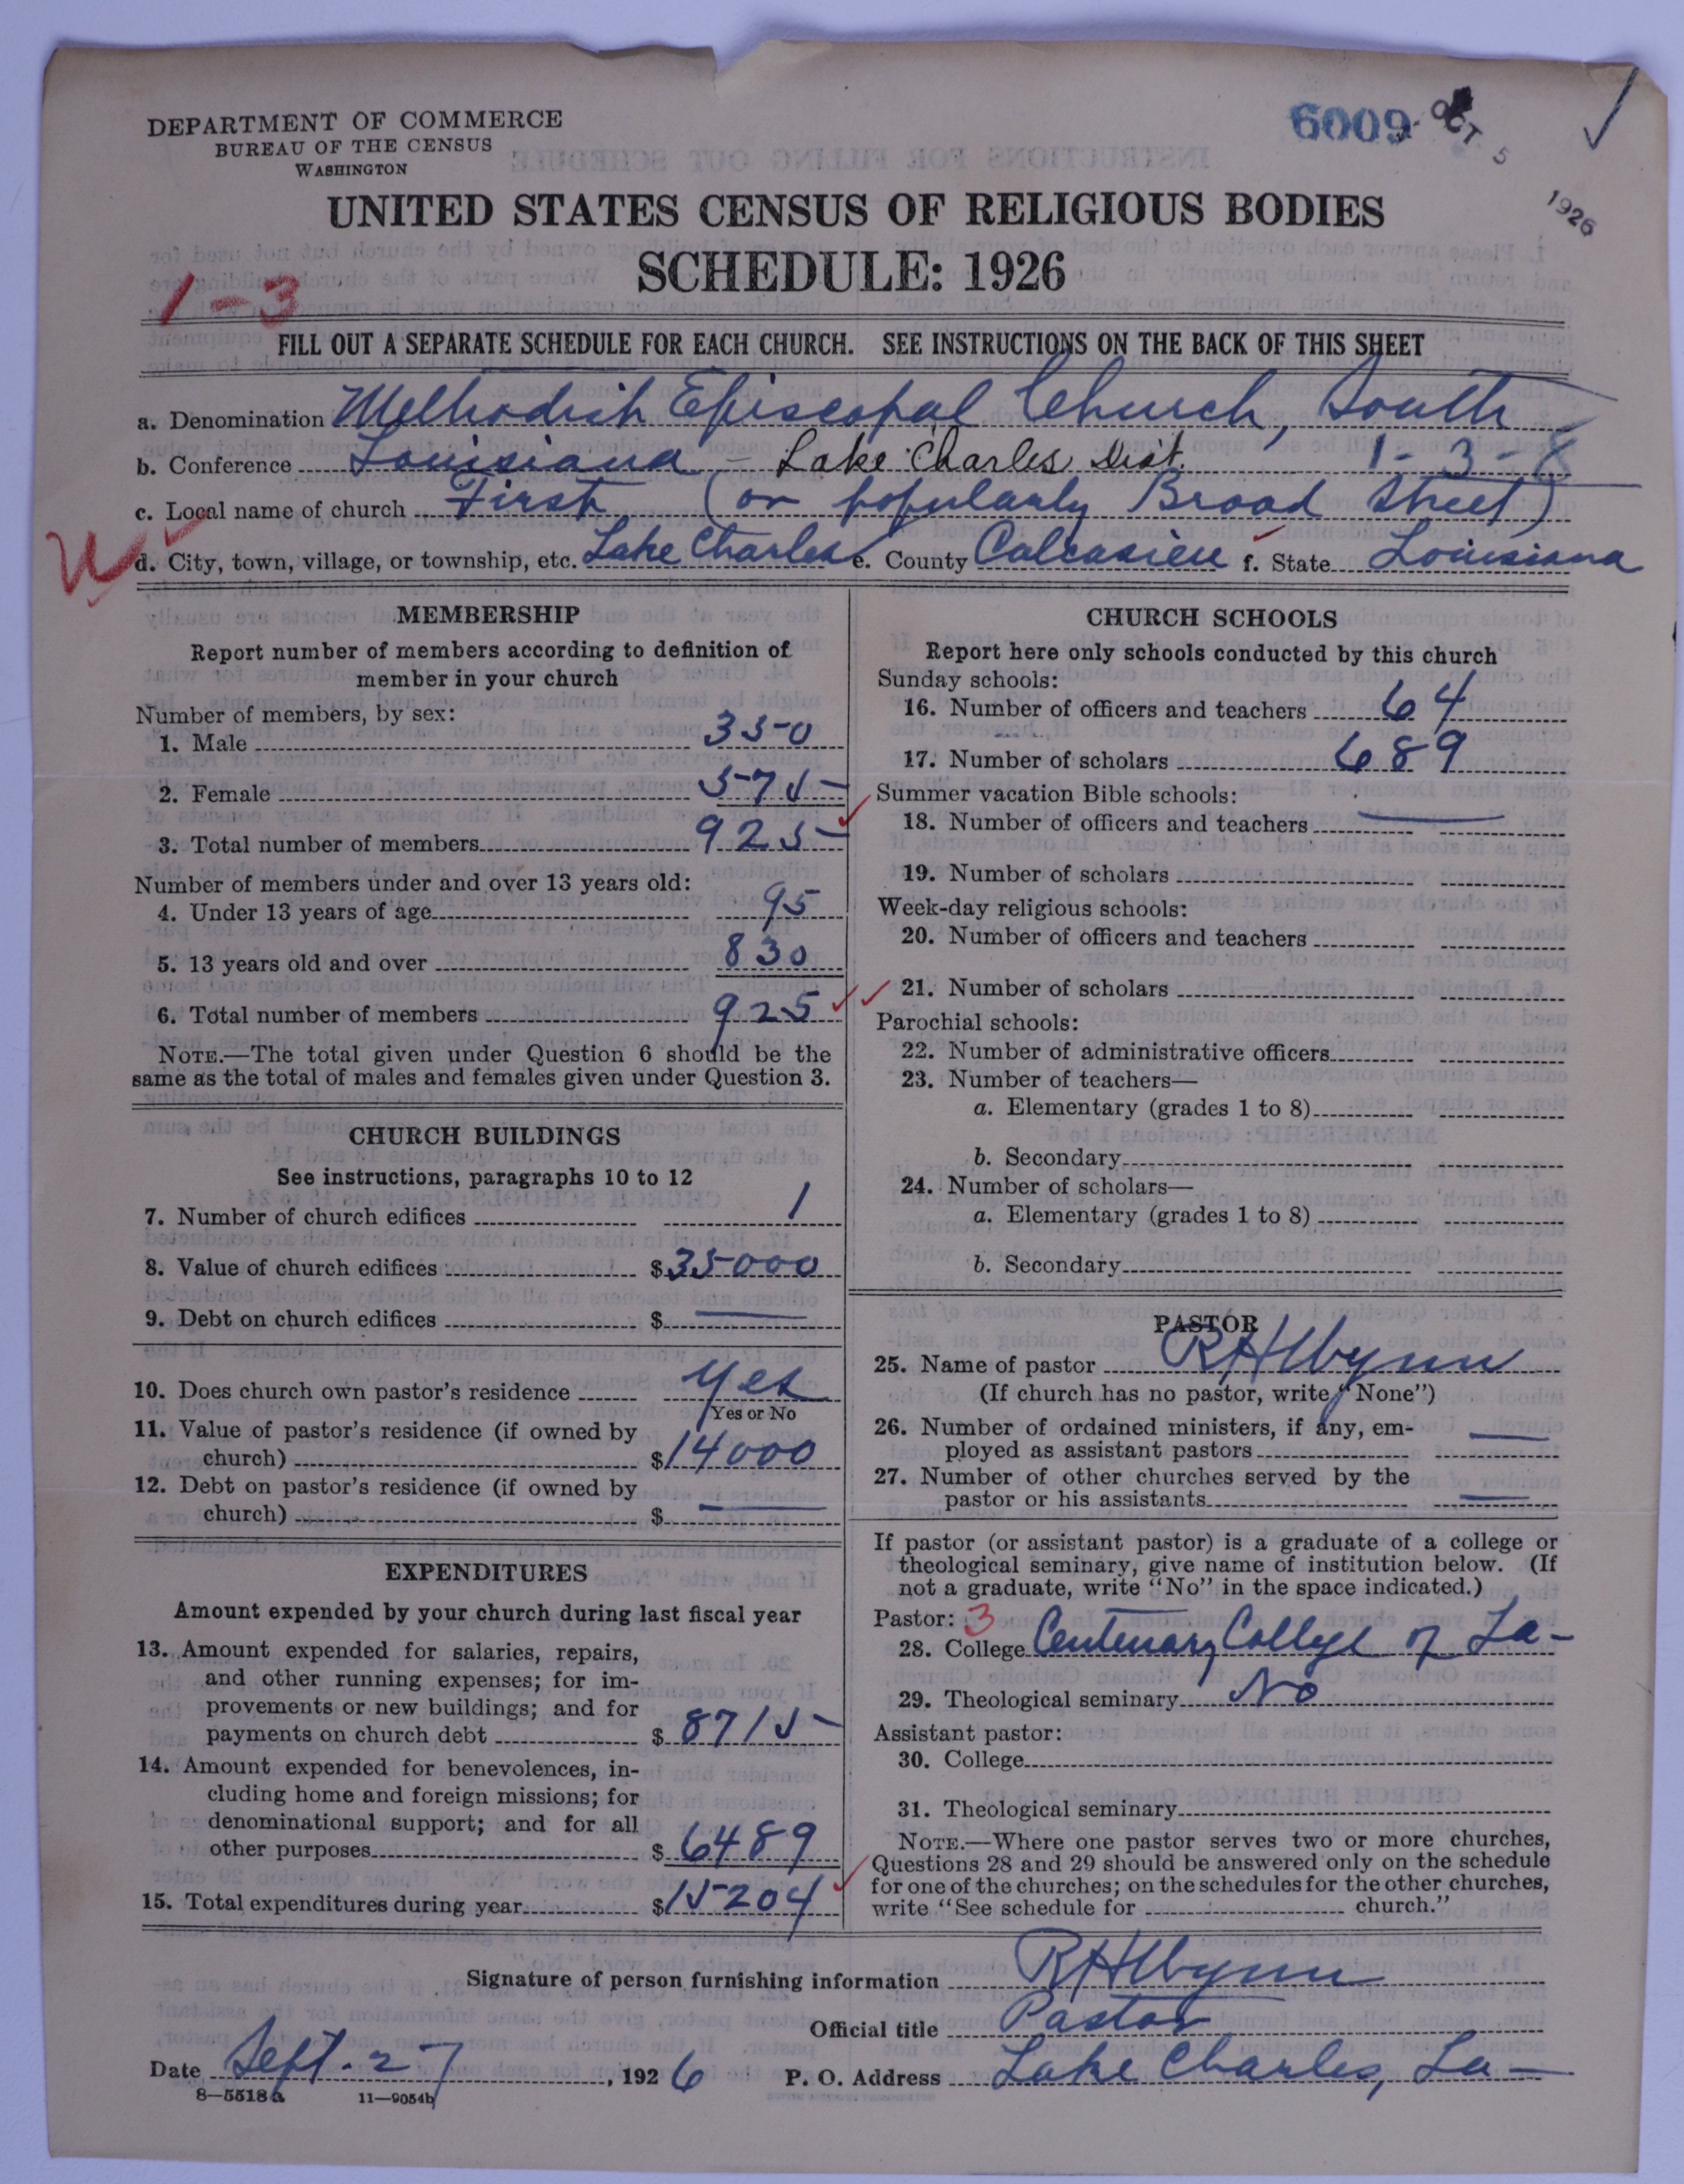 DEPARTMENT OF COMMERCE
BUREAU OF THE CENSUS
WASHINGTON
6009
OCT 5 1926
UNITED STATES CENSUS OF RELIGIOUS BODIES
SCHEDULE: 1926
1-3
FILL OUT A SEPARATE SCHEDULE FOR EACH CHURCH. SEE INSTRUCTIONS ON THE BACK OF THIS SHEET
a. Denomination Methodist Episcopal Church, South
b. Conference Louisiana - Lake Charles Dist. 1-3-8
c. Local name of church First (or popularly Broad Street)
d. City, town, village, or township, etc. Lake Charles e. County Calcasieu f. State Louisiana
MEMBERSHIP
Report number of members according to definition of
member in your church
Number of members, by sex:
1. Male 350
2. Female 575
3. Total number of members 925
Number of members under and over 13 years old:
4. Under 13 years of age 95
5. 13 years old and over 830
6. Total number of members 925
NOTE.—The total given under Question 6 should be the
same as the total of males and females given under Question 3.
CHURCH BUILDINGS
See instructions, paragraphs 10 to 12
7. Number of church edifices 1
8. Value of church edifices $35000
9. Debt on church edifices $ —
10. Does church own pastor's residence Yes
Yes or No
11. Value of pastor's residence (if owned by
church) $14000
12. Debt on pastor's residence (if owned by
church) $ —
EXPENDITURES
Amount expended by your church during last fiscal year
13. Amount expended for salaries, repairs,
and other running expenses; for im-
provements or new buildings; and for
payments on church debt $ 8715
14. Amount expended for benevolences, in-
cluding home and foreign missions; for
denominational support; and for all
other purposes $ 6489
15. Total expenditures during year $15204
CHURCH SCHOOLS
Report here only schools conducted by this church
Sunday schools:
16. Number of officers and teachers 64
17. Number of scholars 689
Summer vacation Bible schools:
18. Number of officers and teachers —
19. Number of scholars
Week-day religious schools:
20. Number of officers and teachers
21. Number of scholars
Parochial schools:
22. Number of administrative officers
23. Number of teachers—
a. Elementary (grades 1 to 8)
b. Secondary
24. Number of scholars—
a. Elementary (grades 1 to 8)
b. Secondary
PASTOR
25. Name of pastor R H Wynn
(If church has no pastor, write "None")
26. Number of ordained ministers, if any, em-
ployed as assistant pastors —
27. Number of other churches served by the
pastor or his assistants —
If pastor (or assistant pastor) is a graduate of a college or
theological seminary, give name of institution below. (If
not a graduate, write "No" in the space indicated.)
Pastor: 3
28. College Centenary College of La-
29. Theological seminary No
Assistant pastor:
30. College
31. Theological seminary
NOTE.—Where one pastor serves two or more churches,
Questions 28 and 29 should be answered only on the schedule
for one of the churches; on the schedules for the other churches,
write "See schedule for church."
Signature of person furnishing information R H Wynn
Official title Pastor
Date Sept. 27, 1926 P. O. Address Lake Charles, La-
8—5518a 11—9054b